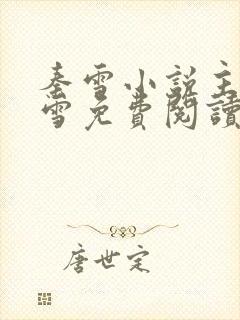 秦雪小說主
雪免費閱讀
唐世定